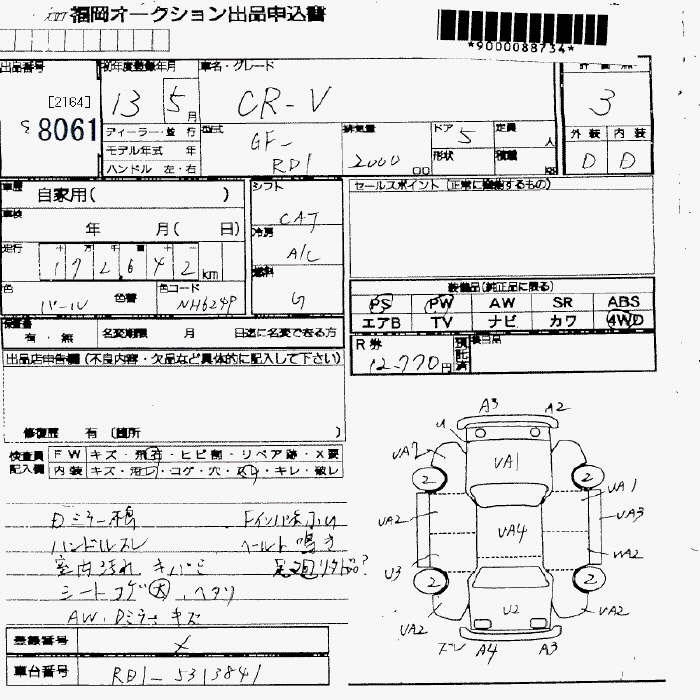 福岡オークション出品申込書
*9000088734*
出品番号
初年度登録年月
車名・グレード
[2164]
8061
13 5月
CR-V
3
外装 内装
D D
ディーラー・並行
モデル年式 年
ハンドル 左・右
型式
GF-
RD1
排気量
2000
ドア 5
形状
定員 人
積載 kg
車歴
自家用( )
車検
年 月( 日)
走行
十 万 千 百 十 一
172,642 km
シフト
CAT
冷房
A/C
燃料
G
セールスポイント (正常に機能するもの)
色
パール
色替
色コード
NH624P
装備品(純正品に限る)
PS PW AW SR ABS
エアB TV ナビ カワ 4WD
有・無
名変期限 月 日迄に名変できる方
R券
12,770円
預託済
後日品
出品店申告欄(不良内容・欠品など具体的に記入して下さい)
修復歴 有 [箇所 ]
検査員記入欄
FW キズ・飛石・ヒビ割・リペア跡・X要
内装 キズ・汚レ・コゲ・穴・スレ・キレ・破レ
ハンドルスレ
ベルト鳴き
室内汚れ キバミ
シートコゲ大、ヘタリ
AW、Dミラーキズ
登録番号
車台番号
RD1-5313841
A3 A2
U
UA2
UA1
2 2
UA1
UA2
UA3
UA4
UA2
U3
2 2
U2
UA2
UA2
A4 A3